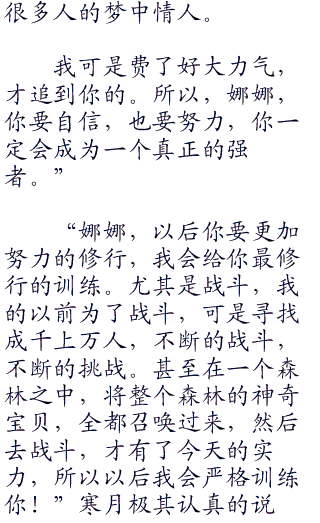 很多人的梦中情人。
我可是费了好大力气，
才追到你的。所以，娜娜，
你要自信，也要努力，你一
定会成为一个真正的强
者。”
“娜娜，以后你要更加
努力的修行，我会给你最修
行的训练。尤其是战斗，我
的以前为了战斗，可是寻找
成千上万人，不断的战斗，
不断的挑战。甚至在一个森
林之中，将整个森林的神奇
宝贝，全都召唤过来，然后
去战斗，才有了今天的实
力，所以以后我会严格训练
你！”寒月极其认真的说